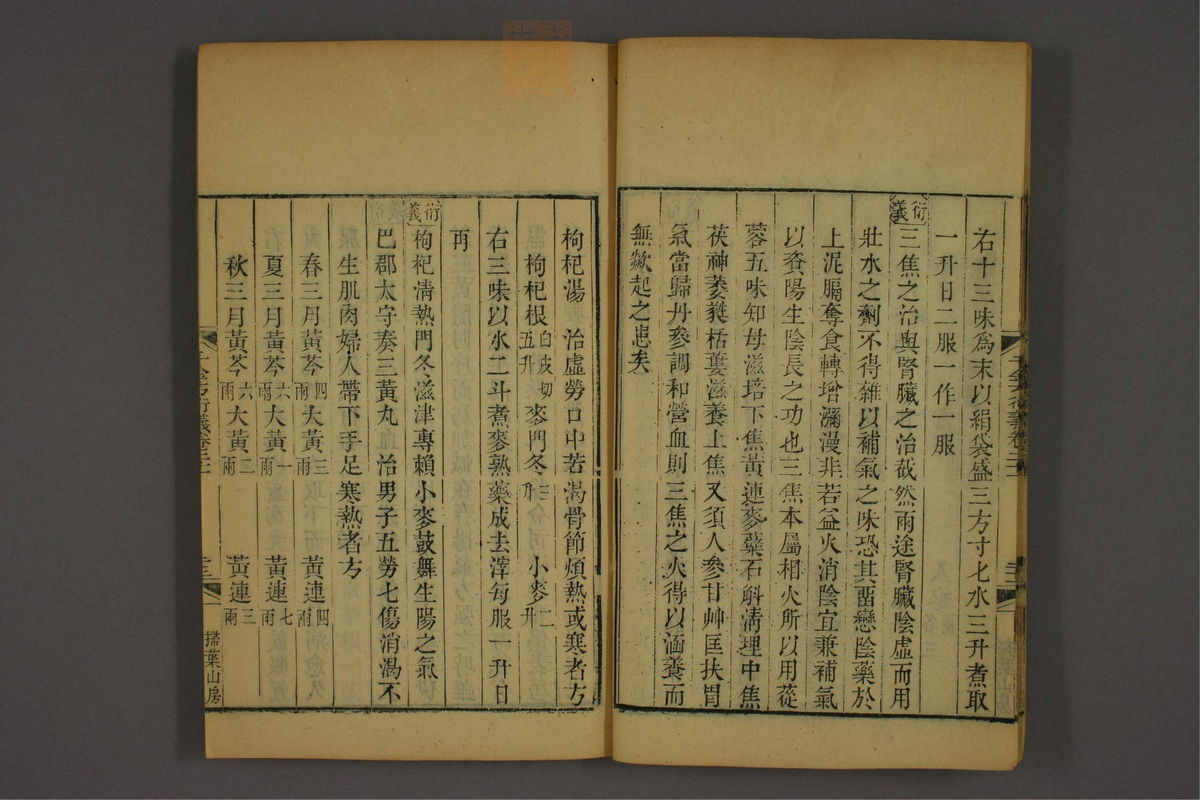 右十三味爲末以絹袋盛三方寸匕水三升煮取
一升日二服一作一服
衍義
三焦之治與腎臟之治截然兩途腎臟陰虛而用
壯水之劑不得雜以補氣之味恐其畱戀陰藥於
上泥膈奪食轉增瀰漫非若益火消陰宜兼補氣
以資陽生陰長之功也三焦本屬相火所以用蓯
蓉五味知母滋培下焦黃連麥蘗石斛淸理中焦
茯神萎蕤栝蔞滋養上焦又須人參甘艸匡扶胃
氣當歸丹參調和營血則三焦之火得以涵養而
無歘起之患矣
枸杞湯 治虛勞口中苦渴骨節煩熱或寒者方
枸杞根白皮切五升 麥門冬三升 小麥二升
右三味以水二斗煮麥熟藥成去滓每服一升日
再
衍義
枸杞淸熱門冬滋津專賴小麥鼓舞生陽之氣
巴郡太守奏三黃丸 治男子五勞七傷消渴不
生肌肉婦人帶下手足寒熱者方
春三月黃芩四兩大黃三兩 黃連四兩
夏三月黃芩六兩大黃一兩 黃連七兩
秋三月黃芩六兩大黃二兩 黃連三兩
千金方衍義卷二十一
掃葉山房